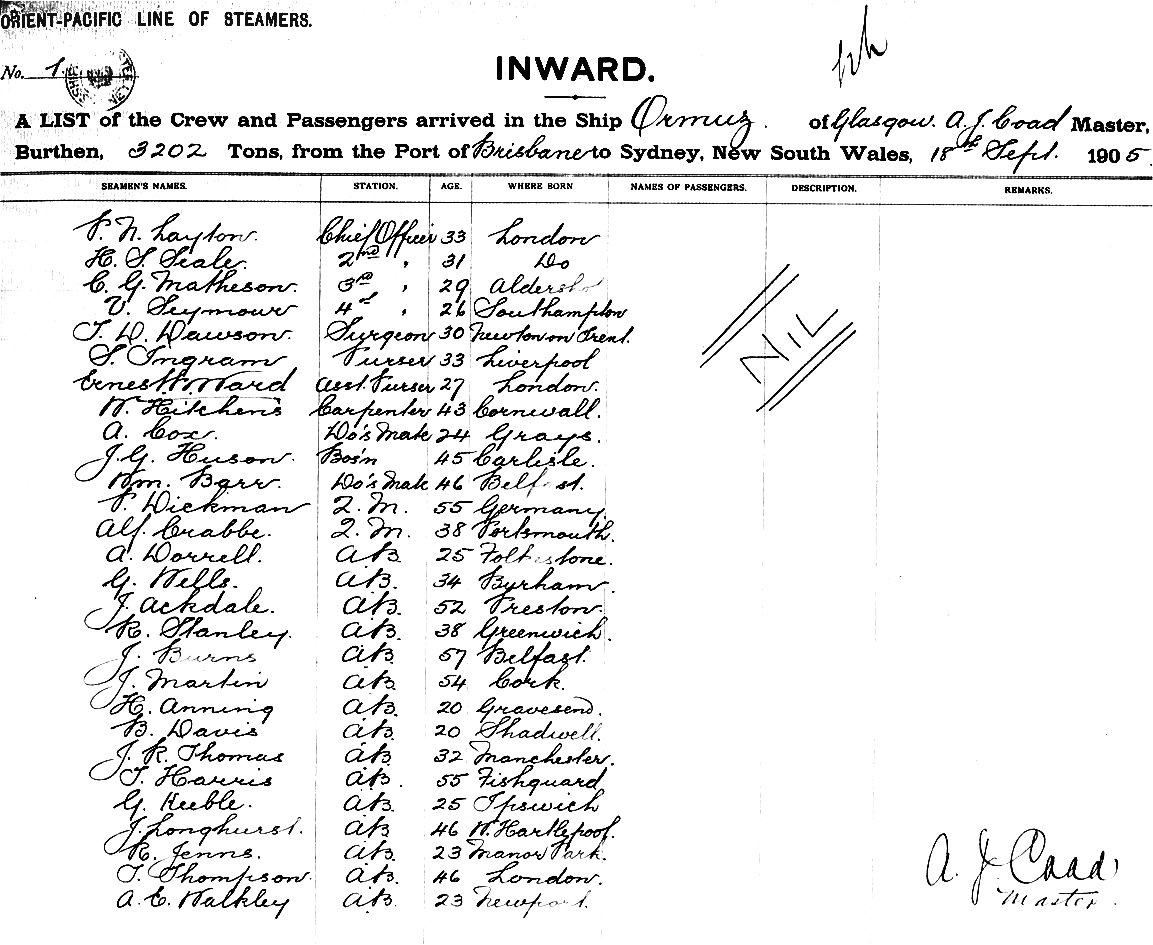 ORIENT-PACIFIC LINE OF STEAMERS.
No. 1
INWARD.
A LIST of the Crew and Passengers arrived in the Ship Ormuz. of Glasgow. A. J. Coad Master,
Burthen, 3202 Tons, from the Port of Brisbane to Sydney, New South Wales, 18th Sept. 1905
SEAMEN'S NAMES. STATION. AGE. WHERE BORN NAMES OF PASSENGERS. DESCRIPTION. REMARKS.
P. N. Layton. Chief Officer 33 London
H. S. Seale. 2nd " 31 Do
C. G. Matheson. 3rd " 29 Aldersho
V. Seymour 4th " 26 Southampton
T. D. Dawson. Surgeon 30 Newton on Trent.
S. Ingram Purser 33 Liverpool
NIL
Ernest W Ward Asst. Purser 27 London.
W. Hitchens Carpenter 43 Cornwall.
A. Cox. Do's Mate 24 Grays.
J. G. Huson. Bos'n 45 Carlisle.
Wm. Barr. Do's Mate 46 Belfast.
P. Dickman Q. M. 55 Germany.
Alf. Crabbe. Q. M. 38 Portsmouth.
A. Dorrell. AB. 25 Folkestone.
G. Wells. AB. 34 Byrham.
J. Ackdale. AB. 52 Preston.
R. Stanley. AB. 38 Greenwich.
J. Burns AB. 57 Belfast.
J. Martin AB. 54 Cork.
H. Anning AB. 20 Gravesend.
B. Davis AB. 20 Shadwell.
J. R. Thomas AB. 32 Manchester.
T. Harris AB. 55 Fishguard
G. Keeble. AB. 25 Ipswich
J. Longhurst. AB. 46 W. Hartlepool.
R. Jenns. AB. 23 Manor Park.
T. Thompson. AB. 46 London.
A. E. Walkley AB. 23 Newport.
A. J. Coad
Master.